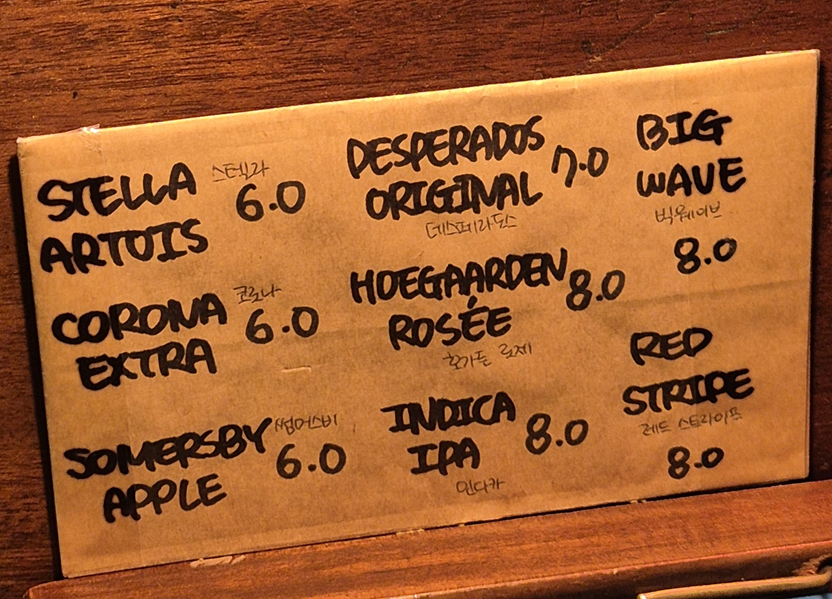 STELLA 스텔라 6.0
ARTOIS
CORONA 코로나 6.0
EXTRA
SOMERSBY 써머스비 6.0
APPLE
DESPERADOS 7.0
ORIGINAL
데스페라도스
HOEGAARDEN 8.0
ROSÉE
호가든 로제
INDICA 8.0
IPA
인디카
BIG
WAVE
빅웨이브
8.0
RED
STRIPE
레드 스트라이프
8.0